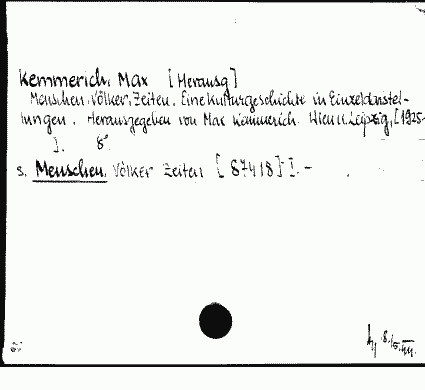 Kemmerich, Max [Herausg]
Menschen, Völker, Zeiten. Eine Kulturgeschichte in Einzeldarstel-
lungen. Herausgegeben von Max Kemmerich. Wien u. Leipzig, [1925-
]. 8°
s. Menschen, Völker Zeiten [87418] I. -